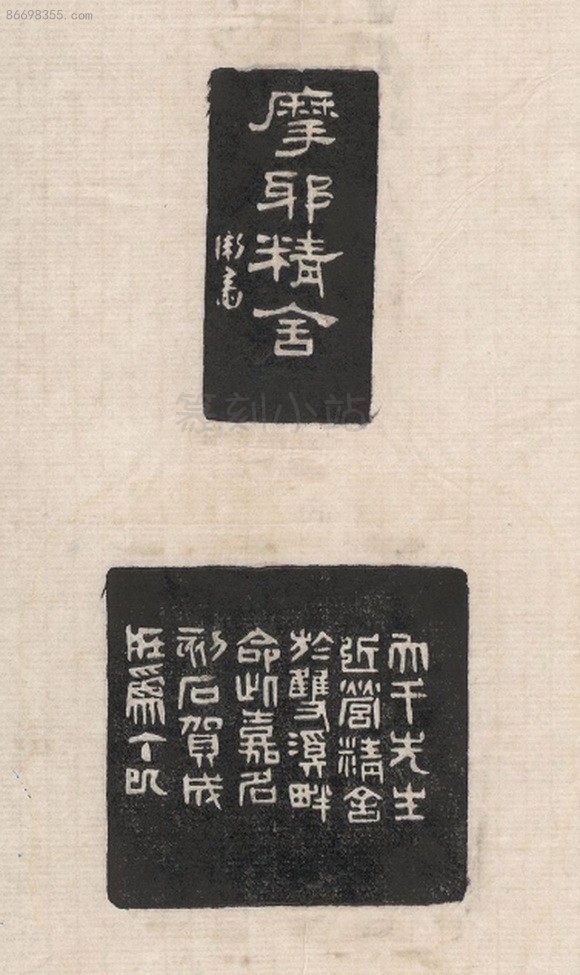 86698355.com
摩耶精舍
衡斋
篆刻小站
大千先生
近營精舍
於雙溪畔
命此嘉名
刻石賀成
時為丁巳